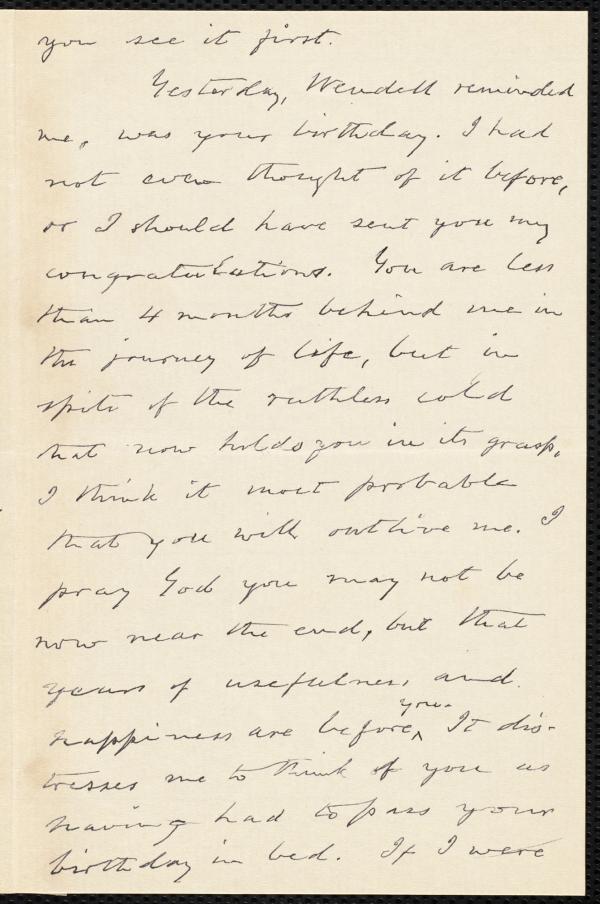 you see it first.
Yesterday, Wendell reminded
me, was your birthday. I had
not even thought of it before,
or I should have sent you my
congratulations. You are less
than 4 months behind me in
the journey of life, but in
spite of the ruthless cold
that now holds you in its grasp,
I think it most probable
that you will outlive me. I
pray God you may not be
now near the end, but that
years of usefulness and
you.
happiness are before ‸ It dis-
tresses me to think of you as
having had to pass your
birthday in bed. If I were